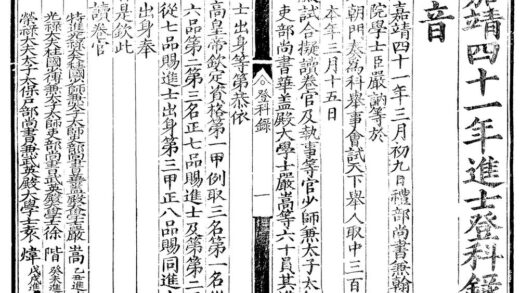 嘉靖四十一年進士登科錄
音
嘉靖四十一年三月初九日禮部尚書兼翰
院學士臣嚴訥等於
朝門奏為科舉事會試天下舉人取中三百
本年三月十五日
殿試合擬讀卷官及執事等官少師兼太子太
吏部尚書華盖殿大學士嚴嵩等六十員其進
士出身等第恭依
高皇帝欽定資格第一甲例取三名第一名從
六品第二第三名正七品賜進士及第第二
從七品賜進士出身第三甲正八品賜同進士
出身奉
是欽此
讀卷官
特進光祿大夫上柱國少師兼太子太師吏部尚書華盖殿大學士嚴嵩 乙丑進士
光祿大夫柱國少傅兼太子太師吏部尚書武英殿大學士徐階 癸未進士
榮祿大夫太子太保戶部尚書兼武英殿大學士袁煒 戊戌進士
登科錄
一